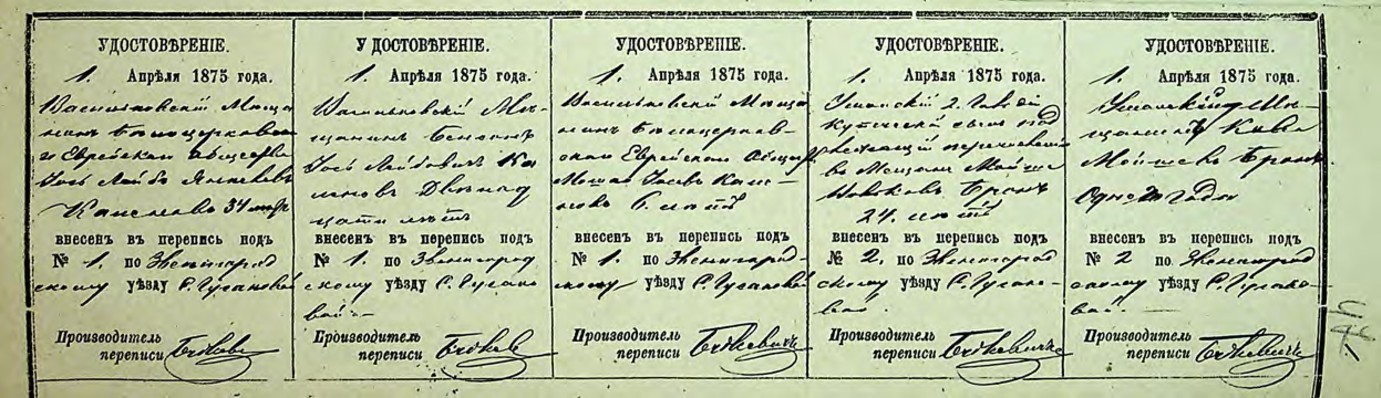 УДОСТОВѢРЕНІЕ.
1. Апрѣля 1875 года.
Васильковскій Мѣща
нинъ Бѣлоцерковска
го Еврейскаго общества
Іось Лейбо Янкелевъ
34 лѣтъ
внесенъ въ перепись подъ
№ 1. по Звенигород
скому уѣзду С. Гусаковой
Производитель
переписи
УДОСТОВѢРЕНІЕ.
1. Апрѣля 1875 года.
Васильковскій Мѣ-
щанинъ
Іось Лейбовичъ Ка
новъ Двѣнад
цати лѣтъ
внесенъ въ перепись подъ
№ 1. по Звенигород
скому уѣзду С. Гусако
вой
Производитель
переписи
УДОСТОВѢРЕНІЕ.
1. Апрѣля 1875 года.
Васильковскій Мѣща
нинъ Бѣлоцерков-
скаго Еврейскаго Общества
Мошко Іосевъ
6. лѣтъ
внесенъ въ перепись подъ
№ 1. по Звенигород-
скому уѣзду С. Гусаковой
Производитель
переписи
УДОСТОВѢРЕНІЕ.
1. Апрѣля 1875 года.
Уманскій 2. Гильдій
купеческій сынъ под
лежащій перечисленію
въ Мещане Мойше
Бронъ
24. лѣтъ
внесенъ въ перепись подъ
№ 2. по Звенигород
скому уѣзду С. Гусако-
вой.
Производитель
переписи
УДОСТОВѢРЕНІЕ.
1. Апрѣля 1875 года.
Уманскій Мѣ-
щанинъ
Мойшевъ Бронъ
Одного года
внесенъ въ перепись подъ
№ 2 по Звенигород
скому уѣзду С. Гусако-
вой.
Производитель
переписи